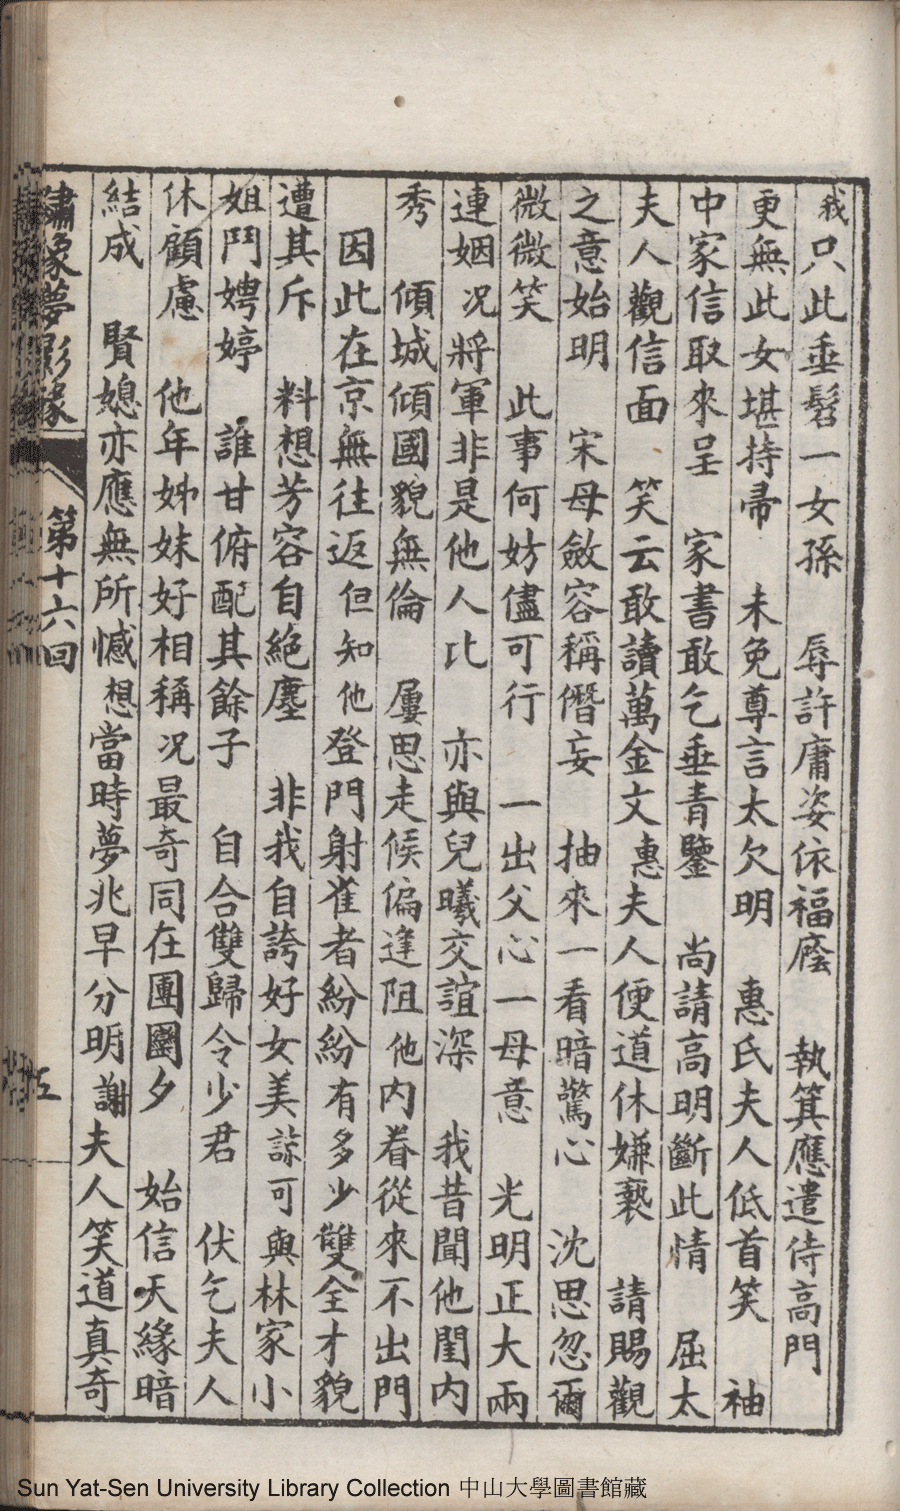 我只此垂髫一女孫　辱許庸姿依福廕　執箕應遣侍高門
更無此女堪持帚　未免尊言太欠明　惠氏夫人低首笑　袖
中家信取來呈　家書敢乞垂青鑒　尚請高明斷此情　屈太
夫人觀信面　笑云敢讀萬金文惠夫人便道休嫌褻　請賜觀
之意始明　宋母斂容稱僭妄　抽來一看暗驚心　沈思忽爾
微微笑　此事何妨儘可行　一出父心一母意　光明正大兩
連姻况將軍非是他人比　亦與兒曦交誼深　我昔聞他閨内
秀　傾城傾國貌無倫　屢思走候偏逢阻他内眷從來不出門
因此在京無往返但知他登門射雀者紛紛有多少雙全才貌
遭其斥　料想芳容自絕塵　非我自誇好女美諒可與林家小
姐鬥娉婷　誰甘俯配其餘子　自合雙歸令少君　伏乞夫人
休顧慮　他年姊妹好相稱况最奇同在團圞夕　始信天緣暗
結成　賢媳亦應無所憾想當時夢兆早分明謝夫人笑道真奇
繡像夢影緣　第十六回